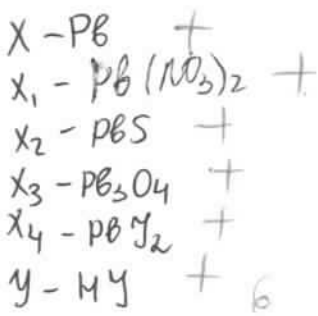 X - Pb +
X₁ - Pb(NO₃)₂ +
X₂ - PbS +
X₃ - Pb₃O₄ +
X₄ - PbJ₂ +
Y - HJ + 6